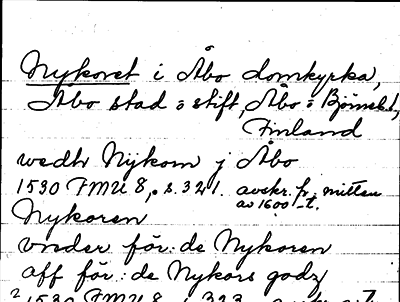 Nykoret i Åbo domkyrka,
Åbo stad o stift, Åbo o Björneb.l,
Finland
wedh Nykom j Åbo
1530 FMU 8, s. 321. avskr. fr. mitten
av 1600-t.
Nykoren
vnder för:de Nykoren
aff för:de Nykors godz
2 1530 FMU 8, s. 323